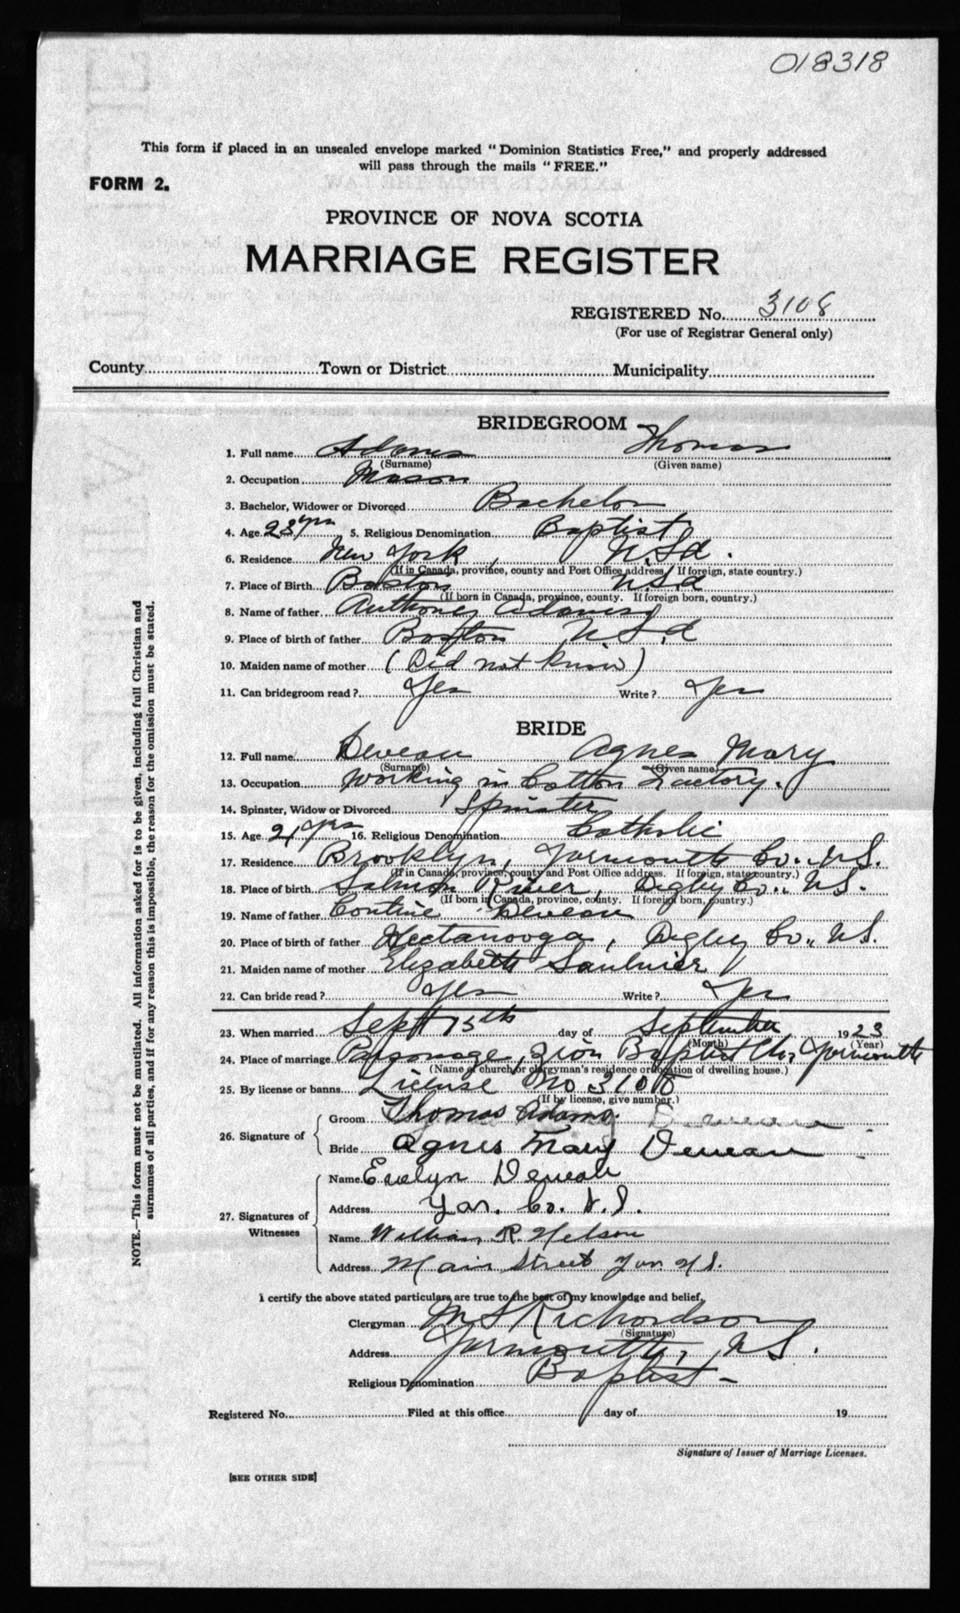 018318
This form if placed in an unsealed envelope marked "Dominion Statistics Free," and properly addressed
will pass through the mails "FREE."
FORM 2.
PROVINCE OF NOVA SCOTIA
MARRIAGE REGISTER
REGISTERED No. 3108
(For use of Registrar General only)
County Town or District Municipality
BRIDEGROOM
1. Full name Adams Thomas
(Surname) (Given name)
2. Occupation Mason
3. Bachelor, Widower or Divorced Bachelor
4. Age 23 yrs 5. Religious Denomination Baptist
6. Residence New York, U.S.A.
(If in Canada, province, county and Post Office address. If foreign, state country.)
7. Place of Birth Boston U.S.A
(If born in Canada, province, county. If foreign born, country.)
8. Name of father Anthony Adams
9. Place of birth of father Boston U.S.A
10. Maiden name of mother (Did not know)
11. Can bridegroom read? Yes Write? Yes
BRIDE
12. Full name Deveau Agnes Mary
(Surname) (Given name)
13. Occupation Working in Cotton Factory.
14. Spinster, Widow or Divorced Spinster
15. Age 21 yrs 16. Religious Denomination Catholic
17. Residence Brooklyn, Yarmouth Co. N.S.
(If in Canada, province, county and Post Office address. If foreign, state country.)
18. Place of birth Salmon River, Digby Co., N.S.
(If born in Canada, province, county. If foreign born, country.)
19. Name of father Contine Deveau
20. Place of birth of father Hectanooga, Digby Co., N.S.
21. Maiden name of mother Elizabeth Saulnier
22. Can bride read? Yes Write? Yes
23. When married Sept 15th day of September 1923
(Month) (Year)
24. Place of marriage Parsonage, Zion Baptist Ch, Yarmouth
(Name of church or clergyman's residence or location of dwelling house.)
25. By license or banns License No 3108
(If by license, give number.)
26. Signature of
Groom Thomas Adams Deveau
Bride Agnes Mary Deveau
27. Signatures of Witnesses
Name Evelyn Deveau
Address Yar. Co. N.S.
Name William R. Nelson
Address Main Street Yar. N S.
I certify the above stated particulars are true to the best of my knowledge and belief.
Clergyman M S Richardson
(Signature)
Address Yarmouth, N.S.
Religious Denomination Baptist
Registered No. Filed at this office day of 19
Signature of Issuer of Marriage Licenses.
[SEE OTHER SIDE]
NOTE.—This form must not be mutilated. All information asked for is to be given, including full Christian and
surnames of all parties, and if for any reason this is impossible, the reason for the omission must be stated.